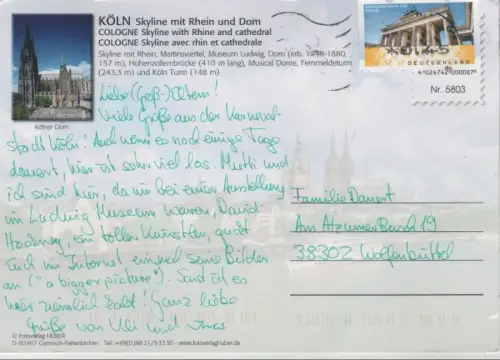 KÖLN Skyline mit Rhein und Dom
COLOGNE Skyline with Rhine and cathedral
COLOGNE Skyline avec rhin et cathedrale
Skyline mit Rhein, Martinsviertel, Museum Ludwig, Dom (erb. 1248-1880,
157 m), Hohenzollernbrücke (410 m lang), Musical Dome, Fernmeldeturm
(243,3 m) und Köln Turm (148 m)
Kölner Dom
DEUTSCHLAND
Nr. 5803
Liebe (Groß-)Eltern!
Viele Grüße aus der Karneval-
stadt Köln! Auch wenn es noch einige Tage
dauert, hier ist schon viel los. Mutti und
ich sind hier, da wir bei einer Ausstellung
im Ludwig Museum waren, David
Hockney, ein toller Künstler, guckt
Euch im Internet einmal seine Bilder
an ("a bigger picture"). Sonst ist es
hier ziemlich kalt! Ganz liebe
Grüße von Uli und
Familie Danert
Am Atzumer Busch 19
38302 Wolfenbüttel
© Fotoverlag HUBER
D-82467 Garmisch-Partenkirchen Tel: +49(0)88 21/9 33 50 - www.fotoverlaghuber.de